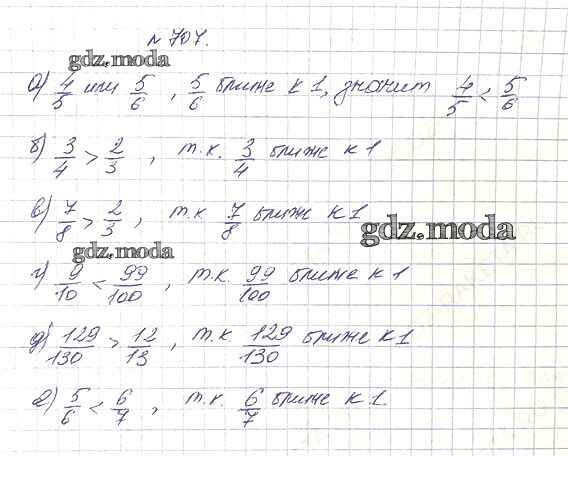 № 707.
gdz.moda
а) 4/5 или 5/6 , 5/6 ближе к 1, значит 4/5 < 5/6
б) 3/4 > 2/3 , т.к. 3/4 ближе к 1
в) 7/8 > 2/3 , т.к 7/8 ближе к 1
gdz.moda
gdz.moda
г) 9/10 < 99/100 , т.к. 99/100 ближе к 1
д) 129/130 > 12/13 , т.к. 129/130 ближе к 1
е) 5/6 < 6/7 , т.к. 6/7 ближе к 1.